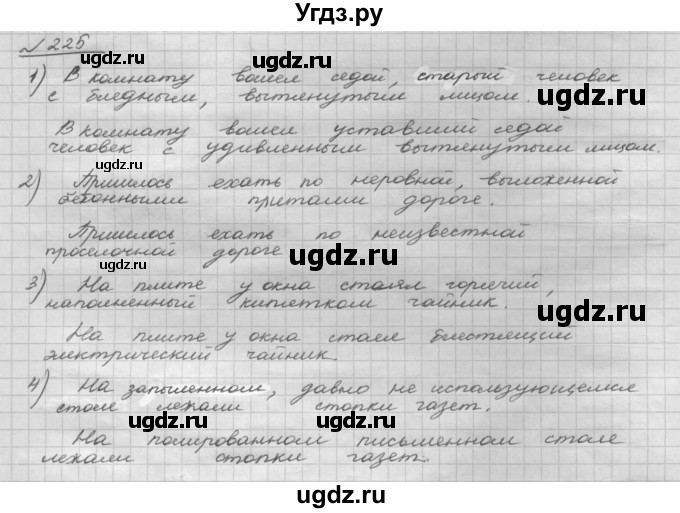 Угдз.ру
№ 225
1) В комнату вошел седой, старый человек
с бледным, вытянутым лицом.
В комнату вошел уставший седой
человек с удивленным вытянутым лицом.
2) Пришлось ехать по неровной, выложенной
бетонными плитами дороге.
Пришлось ехать по неизвестной
проселочной дороге
3) На плите у окна стоял горячий,
наполненный кипятком чайник.
На плите у окна стоял блестящий
электрический чайник
4) На запыленном, давно не использующемся
столе лежали стопки газет.
На полированном письменном столе
лежали стопки газет.
ugdz.ru
ugdz.ru
ugdz.ru
ugdz.ru
ugdz.ru
ugdz.ru
ugdz.ru
ugdz.ru
ugdz.ru
ugdz.ru
ugdz.ru
ugdz.ru
ugdz.ru